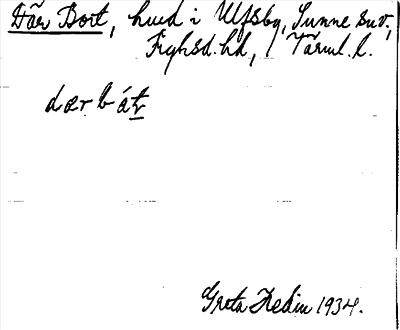 Där Bort, hvid i Ulfsby, Sunne sn v.,
Fryksd. hd, Värml. l.
dær b át
Greta Hedin 1934.